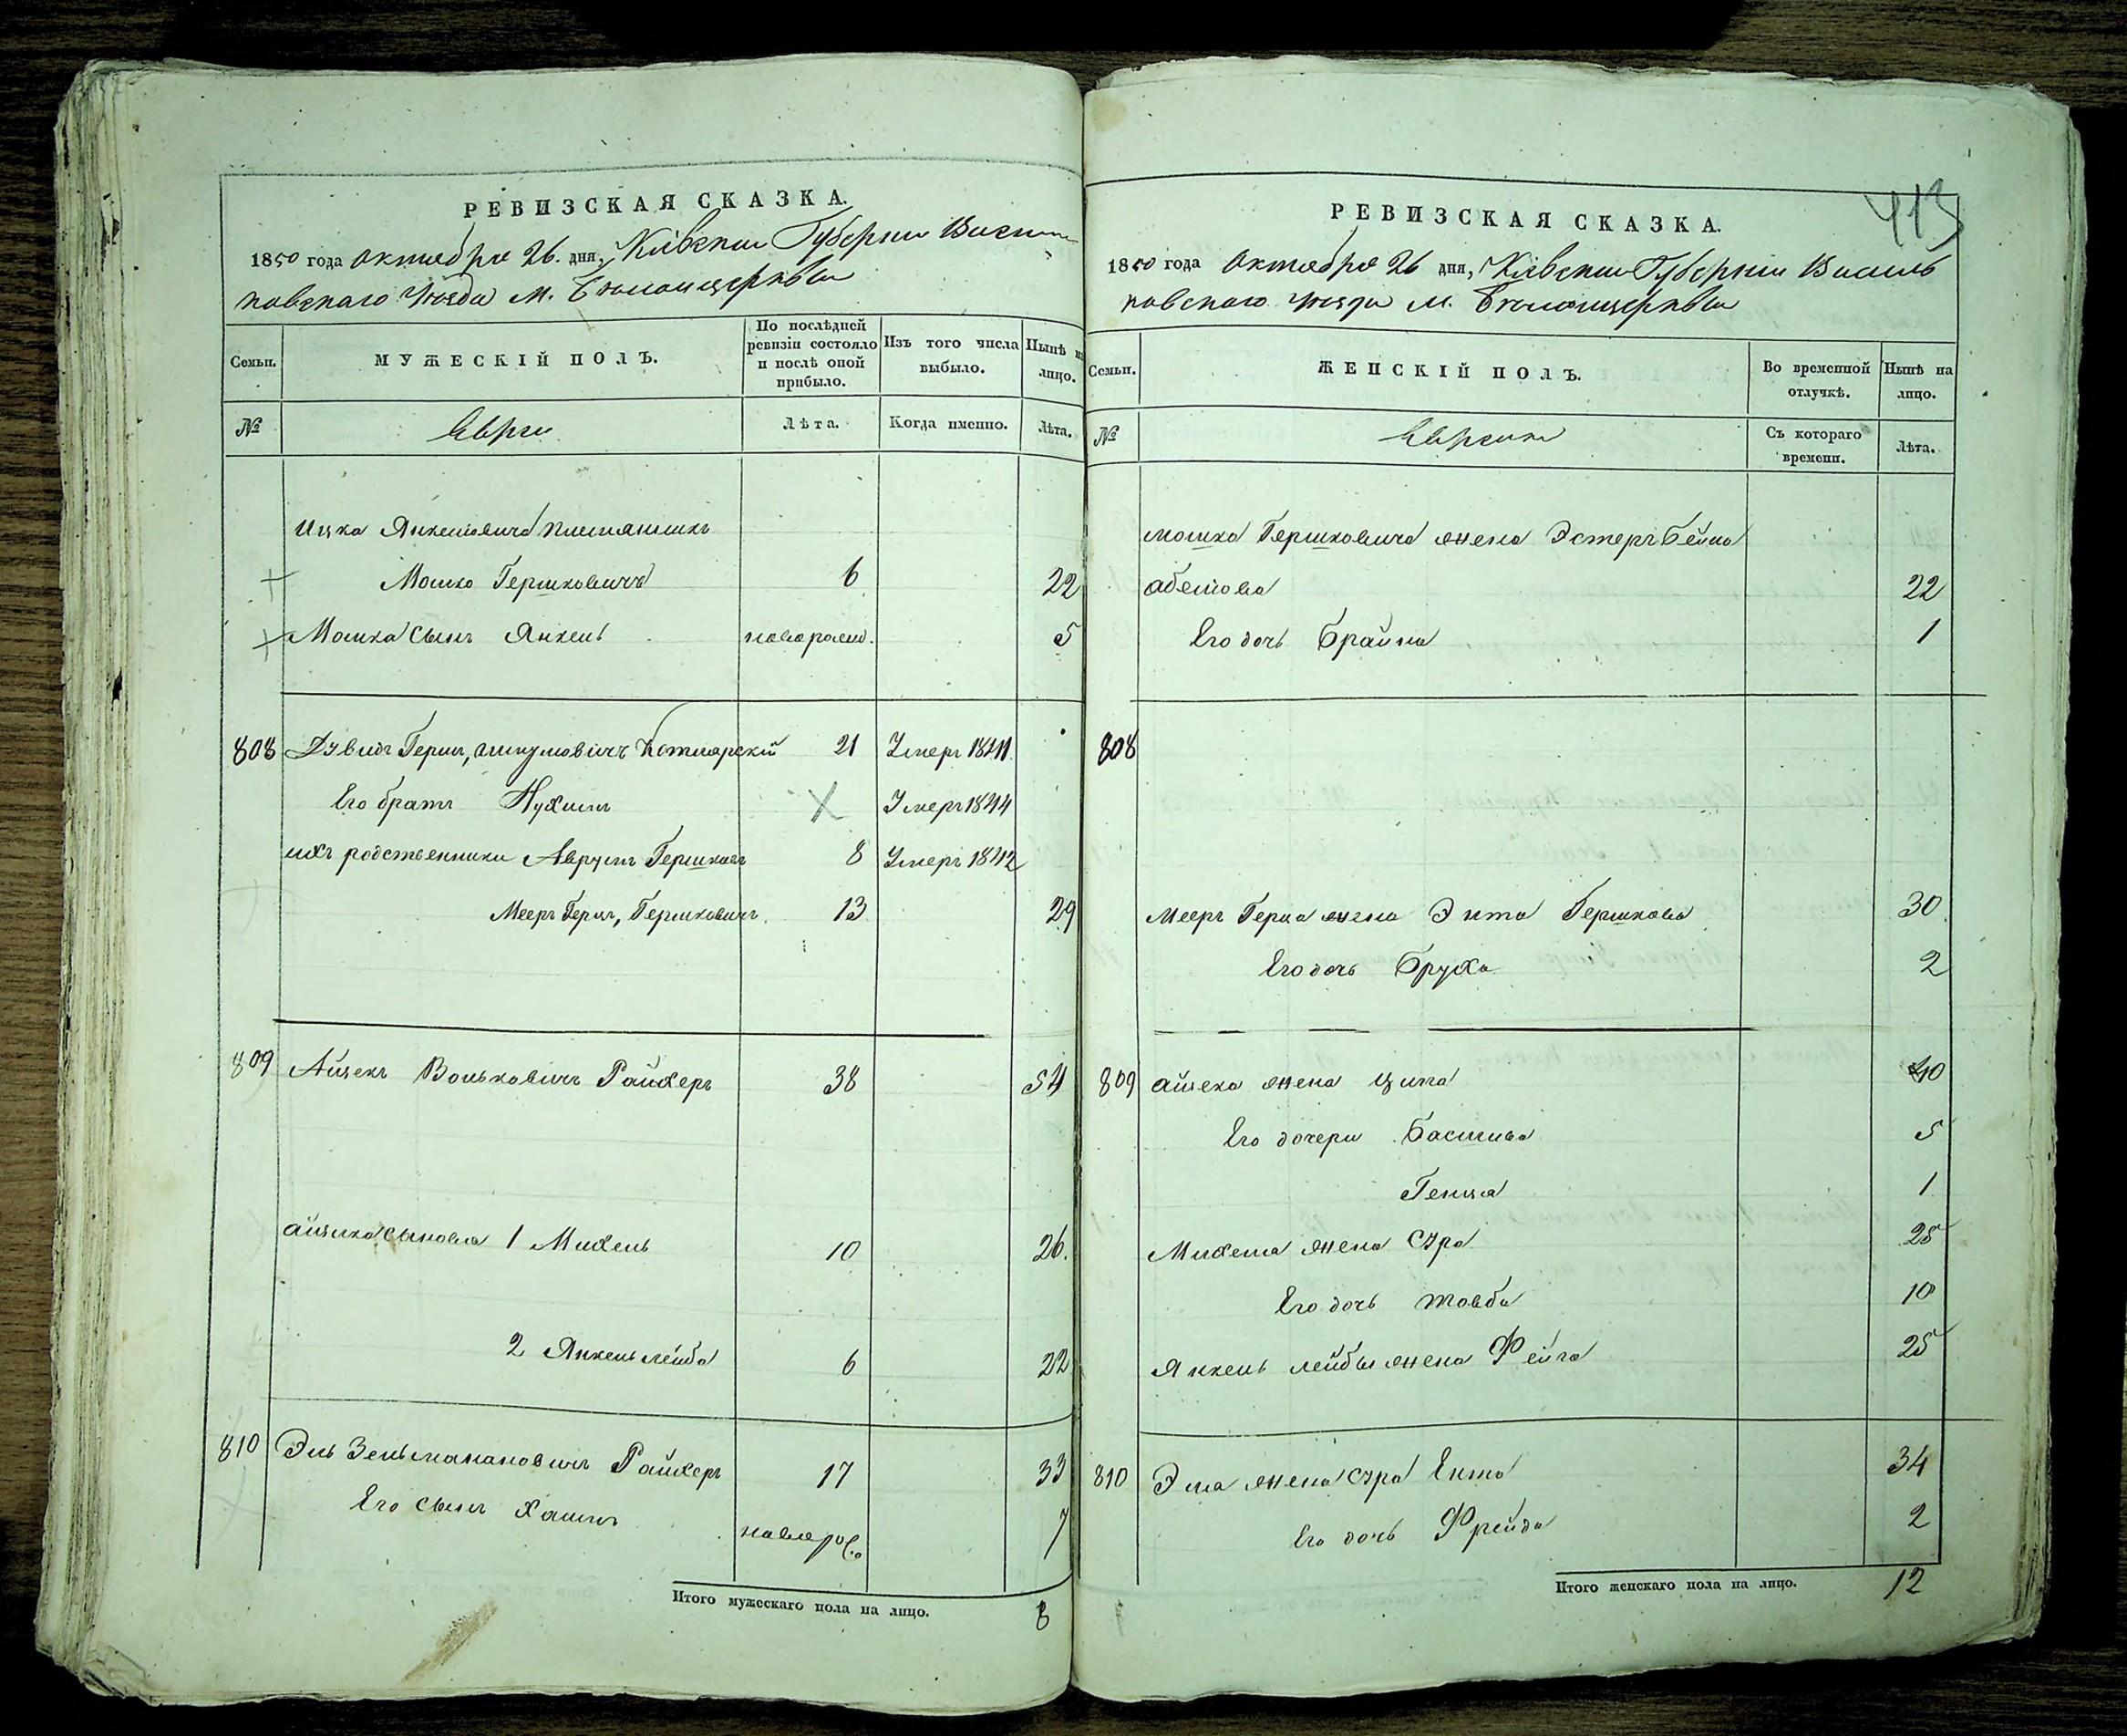 РЕВИЗСКАЯ СКАЗКА.
1850 года Октября 26 дня, Кіевской Губерніи Василь
ковскаго Уезда м. Белоицеркви
Семьи. МУЖЕСКІЙ ПОЛЪ. По послѣдней ревизіи состояло и послѣ оной прибыло. Изъ того числа выбыло. Нынѣ на лицо.
№ Евреи Лѣта. Когда именно. Лѣта.
Ицка Янкелювича племянникъ
Мошко Гершковичъ 6 22
Мошка сынъ Янкель новорожд. 5
808 Дувидъ Герш, Шлумовичъ Котлярскій 21 Умеръ 1841
Его братъ Нухимъ Умеръ 1844
ихъ родственники Аврумъ Гершков 8 Умеръ 1842
Мееръ Герш, Гершковичъ 13 29
809 Айзекъ Вольковичъ Райхеръ 38 54
айзика сыновья 1 Михель 10 26.
2 Янкель лейба 6 22
810 Эль Зельманановичъ Райхеръ 17 33
Его сынъ Хаимъ новоро. 7
Итого мужескаго пола на лицо. 8
413
РЕВИЗСКАЯ СКАЗКА.
1850 года Октября 26 дня, Кіевской Губерніи Василь
ковскаго уезда м. Белоицеркви
Семьи. ЖЕНСКІЙ ПОЛЪ. Во временной отлучкѣ. Нынѣ на лицо.
№ Еврейки Съ котораго времени. Лѣта.
мошка Гершковича жена Эстеръ Бейла
абелиова 22
Его дочь Брайна 1
808
Мееръ Герша жена Энта Гершкова 30
Его дочь Бруха 2
809 айзека жена Ципа 40
Его дочери Басшива 5
Генця 1
Михеля жена Сура 25
Его дочь Товба 10
Янкель лейбы жена Фейга 25
810 Эля жена Сура Ента 34
Его дочь Фрейда 2
Итого женскаго пола на лицо. 12